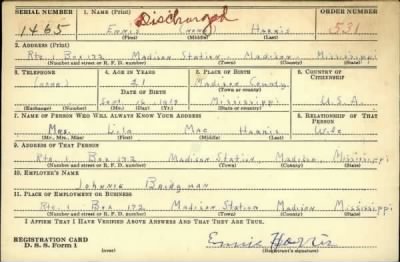 SERIAL NUMBER 1. NAME (Print) ORDER NUMBER
Discharged
1465 Ennis (none) Harris 531
(First) (Middle) (Last)
2. ADDRESS (Print)
Rte. 1 Box 172 Madison Station, Madison, Mississippi
(Number and street or R. F. D. number) (Town) (County) (State)
3. TELEPHONE 4. AGE IN YEARS 5. PLACE OF BIRTH 6. COUNTRY OF CITIZENSHIP
(none) 21 Madison County
DATE OF BIRTH (Town or county)
Sept. 16 1919 Mississippi U.S.A.
(Exchange) (Number) (Mo.) (Day) (Yr.) (State or country)
7. NAME OF PERSON WHO WILL ALWAYS KNOW YOUR ADDRESS 8. RELATIONSHIP OF THAT PERSON
Mrs. Lila Mae Harris Wife
(Mr., Mrs., Miss) (First) (Middle) (Last)
9. ADDRESS OF THAT PERSON
Rte. 1 Box 172 Madison Station, Madison, Mississippi
(Number and street or R. F. D. number) (Town) (County) (State)
10. EMPLOYER'S NAME
Johnnie Bridgman
11. PLACE OF EMPLOYMENT OR BUSINESS
Rte. 1 Box 172 Madison Station Madison Mississippi
(Number and street or R. F. D. number) (Town) (County) (State)
I AFFIRM THAT I HAVE VERIFIED ABOVE ANSWERS AND THAT THEY ARE TRUE.
REGISTRATION CARD
D. S. S. Form 1 (over) Ennis Harris
(Registrant's signature)